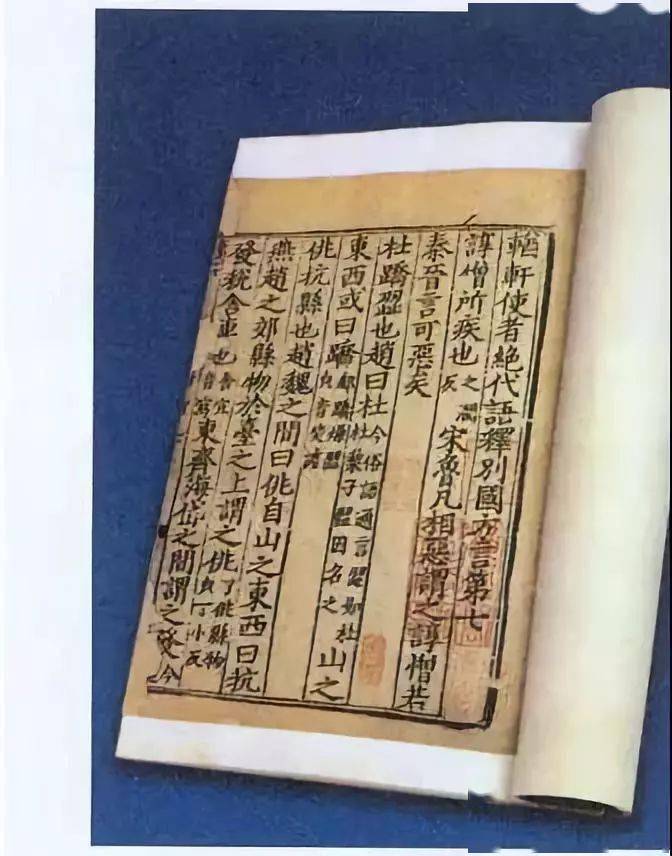 輶軒使者絕代語釋別國方言第七
諄憎所疾也之潤反宋魯凡相惡謂之諄憎若
秦晉言可惡矣
杜蹻歰也趙曰杜今俗語通言歰如杜杜梨子歰因名之山之
東西或曰蹻郄蹻燥歰皃音笑謔
佻抗縣也趙魏之間曰佻自山之東西曰抗
燕趙之郊縣物於臺之上謂之佻了佻縣物皃丁小反
發稅舍車也舍宜音寫東齊海岱之間謂之發今